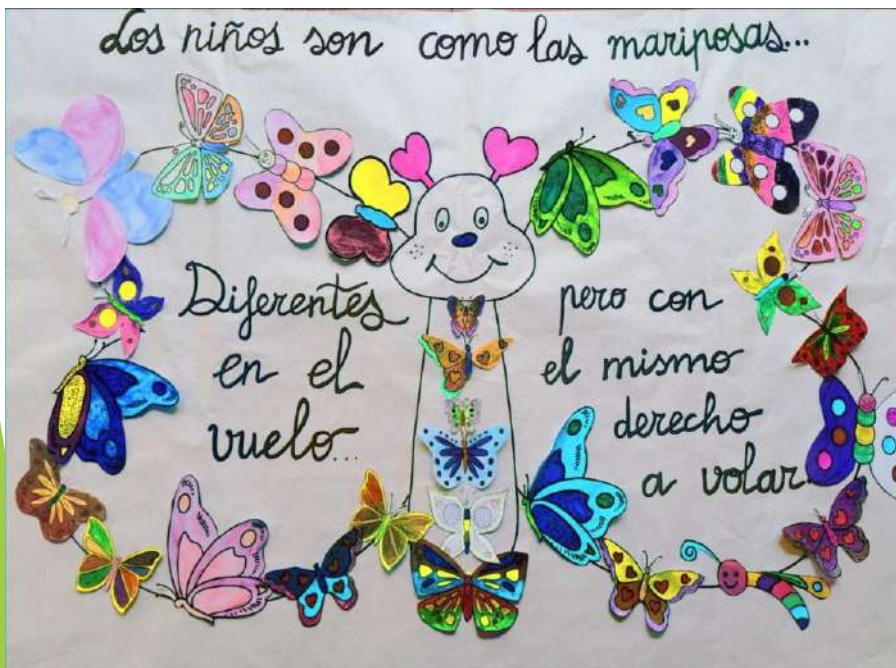 Los niños son como las mariposas...
Diferentes
en el
vuelo...
pero con
el mismo
derecho
a volar